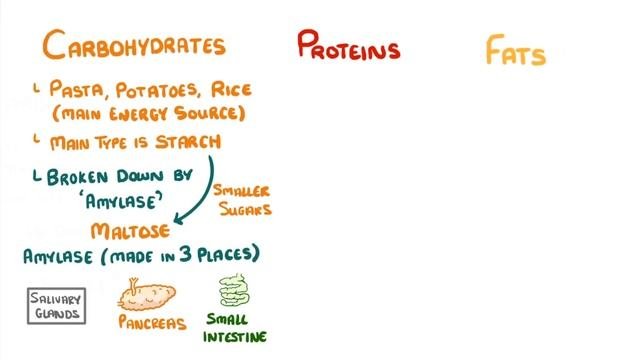 CARBOHYDRATES
PROTEINS
FATS
PASTA, POTATOES, RICE
(MAIN ENERGY SOURCE)
MAIN TYPE IS STARCH
BROKEN DOWN BY
'AMYLASE'
SMALLER
SUGARS
MALTOSE
AMYLASE (MADE IN 3 PLACES)
SALIVARY
GLANDS
PANCREAS
SMALL
INTESTINE